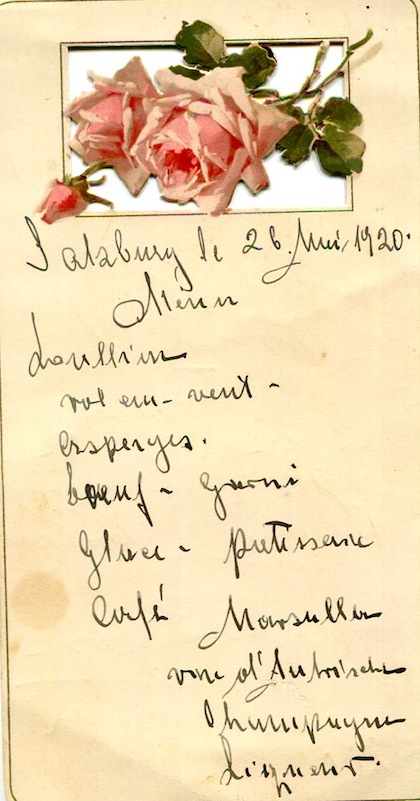 Salzburg le 26. Mai 1920.
Menu
Boullion
vol em-vent-
Essperges.
boeuf - Garni
Glace - Patisserie
Café Marsalla
vin d'Autriche
Champagne